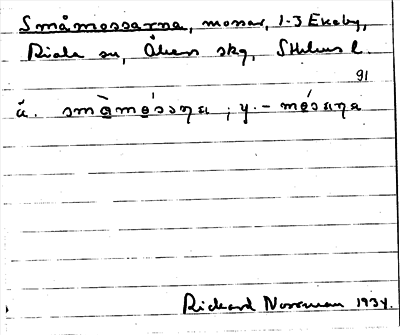 Småmossarna, mossar, 1-3 Ekeby,
Riala sn, Åkers skg, Sthlms l.
91
ä. ; y. -
Rickard Norrman 1934.